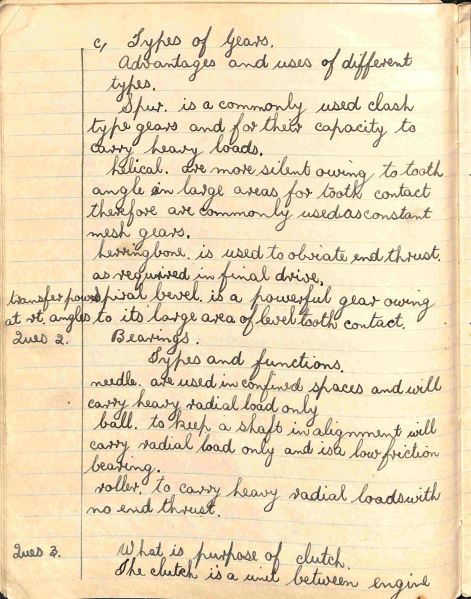 c, Types of Gears.
Advantages and uses of different
types.
Spur. is a commonly used clash
type gears and for their capacity to
carry heavy loads.
helical. are more silent owing to tooth
angle in large areas for tooth contact
therefore are commonly used as constant
mesh gears.
herringbone. is used to obviate end thrust.
as required in final drive.
transfer power spiral bevel. is a powerful gear owing
at rt. angles to its large area of level tooth contact.
Ques 2. Bearings.
Types and functions.
needle. are used in confined spaces and will
carry heavy radial load only
ball. to keep a shaft in alignment will
carry radial load only and is a low friction
bearing.
roller. to carry heavy radial loads with
no end thrust.
Ques 3. What is purpose of clutch.
The clutch is a unit between engine